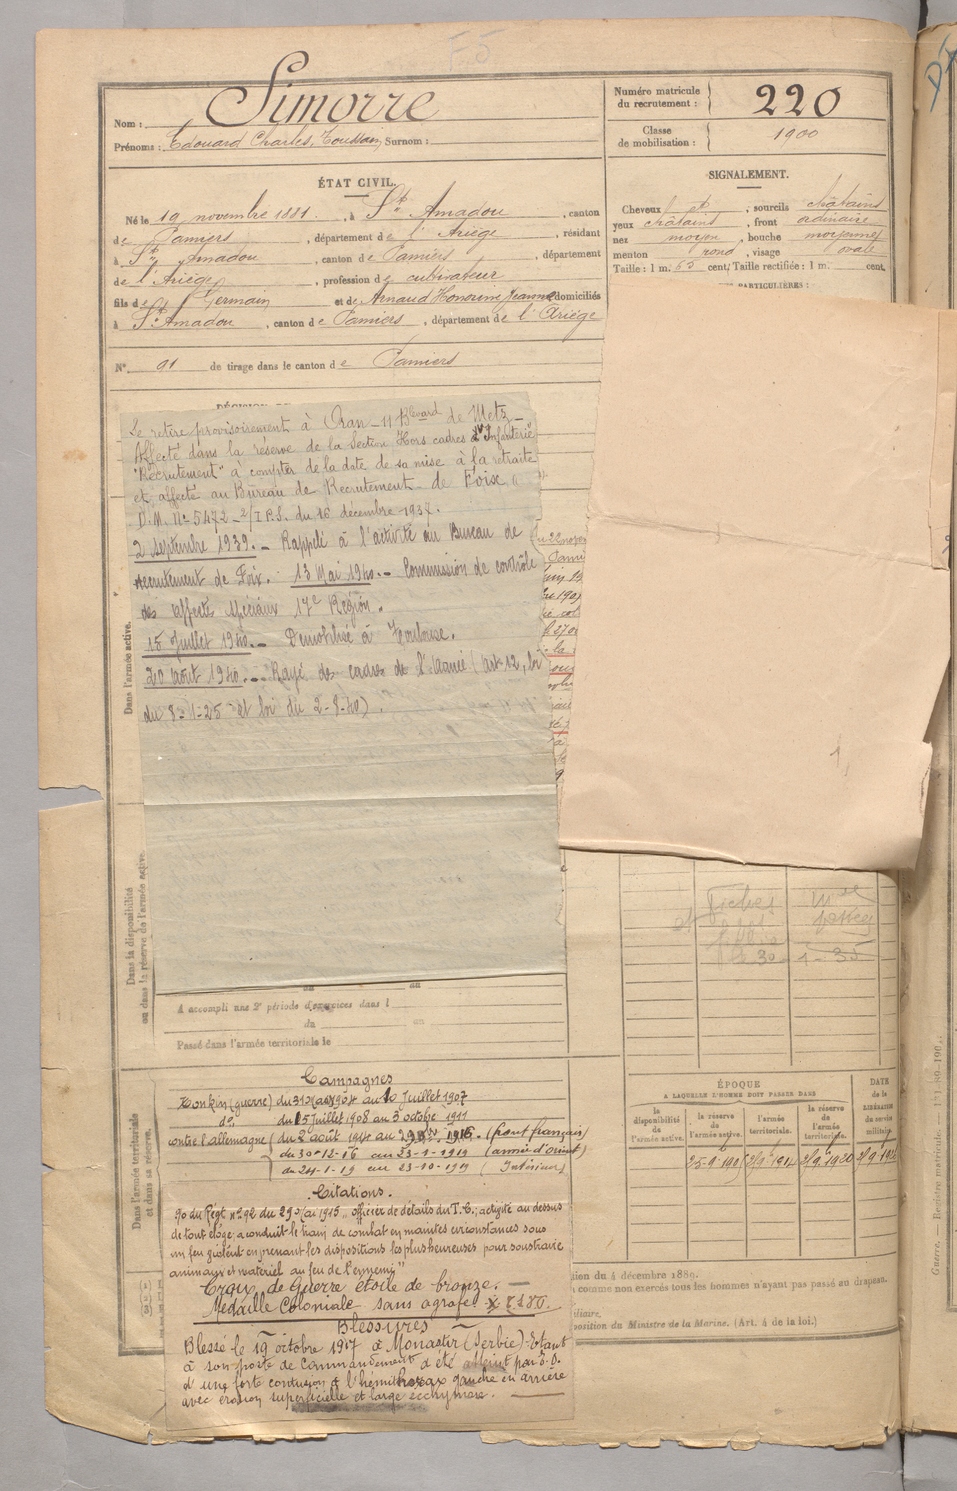 F 5
Nom : Simorre
Prénoms : Edouard Charles, Toussain Surnom :
Numéro matricule du recrutement : 220
Classe de mobilisation : 1900
ÉTAT CIVIL.
Né le 19 novembre 1881. , à St Amadou , canton
de Pamiers , département de l'Ariège , résidant
à St Amadou , canton de Pamiers , département
de l'Ariège , profession de cultivateur
fils de Germain et de Arnaud Honorine Jeanne domiciliés
à St Amadou , canton de Pamiers , département de l'Ariège
N° 91 de tirage dans le canton de Pamiers
SIGNALEMENT.
Cheveux , sourcils châtains
yeux châtains , front ordinaire
nez moyen , bouche moyenne
menton rond , visage ovale
Taille : 1 m. 65 cent. Taille rectifiée : 1 m. cent.
PARTICULIÈRES :
Se retire provisoirement à Oran - 11 Blevard de Metz -
Affecté dans la réserve de la Section Hors cadres d'Infanterie
"Recrutement" à compter de la date de sa mise à la retraite
et affecté au Bureau de Recrutement de Foix
D.M. N° 5472 - 2/I.P.S. du 16 décembre 1937.
2 Septembre 1939. - Rappelé à l'activité au Bureau de
recrutement de Foix. 13 Mai 1940. - Commission de contrôle
des affectés spéciaux 17e Région.
15 Juillet 1940. - Démobilisé à Toulouse.
20 août 1940. - Rayé des cadres de l'Armée (art 12, loi
du 8-1-25 et loi du 2-8-40).
Dans l'armée active.
Dans la disponibilité
ou dans la réserve de l'armée active.
A accompli une 2e période d'exercices dans l
du au
Passé dans l'armée territoriale le
Dans l'armée territoriale
et dans sa réserve.
Campagnes
Tonkin (guerre) du 31 Mai 1904 au 10 Juillet 1907
do du 15 Juillet 1908 au 3 octobre 1911
contre l'allemagne (du 2 août 1914 au 1916 (front français)
du 30-12-16 au 23-1-1919 (armée d'orient)
du 24-1-19 au 23-10-1919 (Intérieur)
Citations.
go du Régt n° 92 du 29 Mai 1915 "officier de détails du T.C., activité au dessus
de tout éloge, a conduit le train de combat en maintes circonstances sous
un feu violent en prenant les dispositions les plus heureuses pour soustraire
animaux et matériel au feu de l'ennemi"
Croix de Guerre étoile de bronze. -
Médaille Coloniale sans agrafe
Blessures
Blessé le 19 octobre 1917 à Monastir (Serbie) - Etant
à son poste de commandement a été atteint par E.O.
d'une forte contusion à l'hémithorax gauche en arrière
avec érosion superficielle et large ecchymose.
ÉPOQUE
A LAQUELLE L'HOMME DOIT PASSER DANS
la disponibilité de l'armée active.
la réserve de l'armée active.
l'armée territoriale.
la réserve de l'armée territoriale.
DATE de la LIBÉRATION du service militaire.
25-9-1901
du 4 décembre 1889.
comme non exercés tous les hommes n'ayant pas passé au drapeau.
position du Ministre de la Marine. (Art. 4 de la loi.)